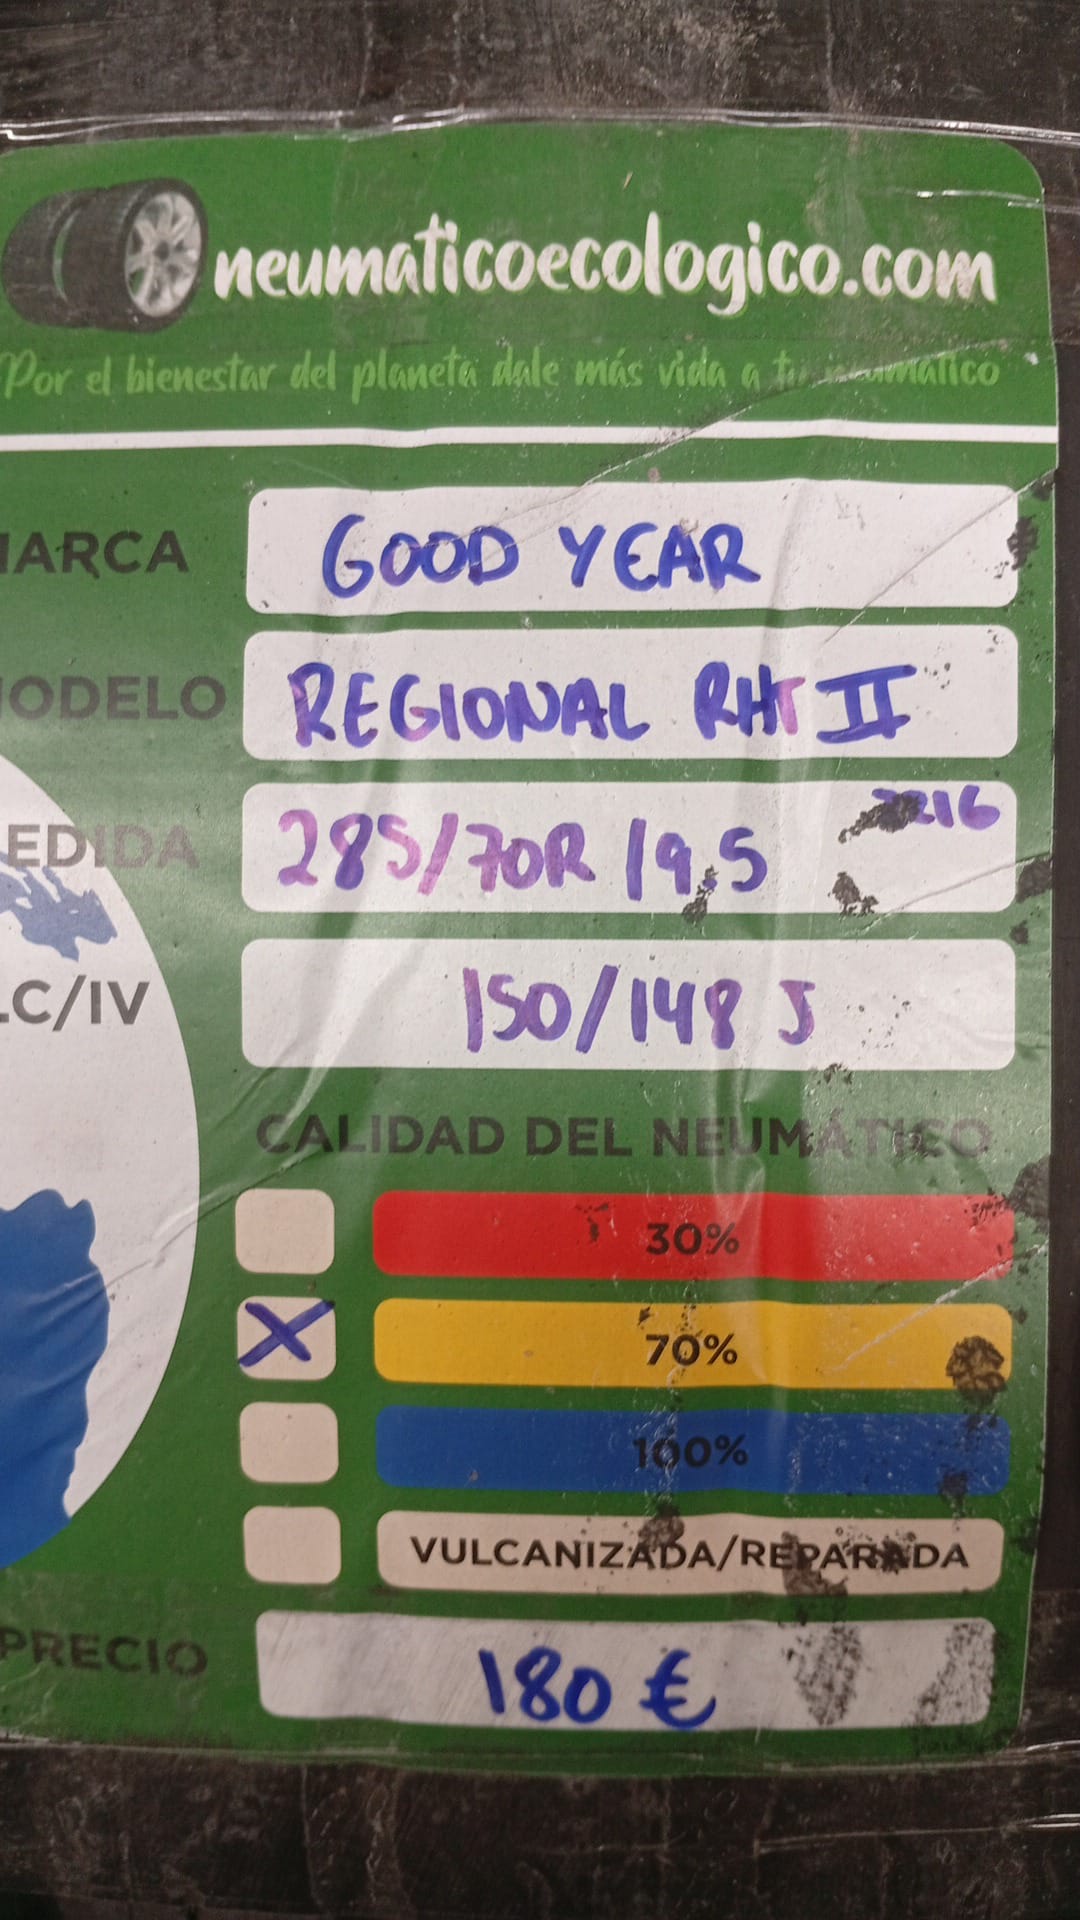 neumaticoecologico.com
Por el bienestar del planeta dale más vida a tu neumatico
MARCA GOOD YEAR
MODELO REGIONAL RHT II
EDIDA 285/70R 19.5
.C/IV 150/148 J
CALIDAD DEL NEUMÁTICO
30%
X 70%
100%
VULCANIZADA/REPARADA
PRECIO 180 €